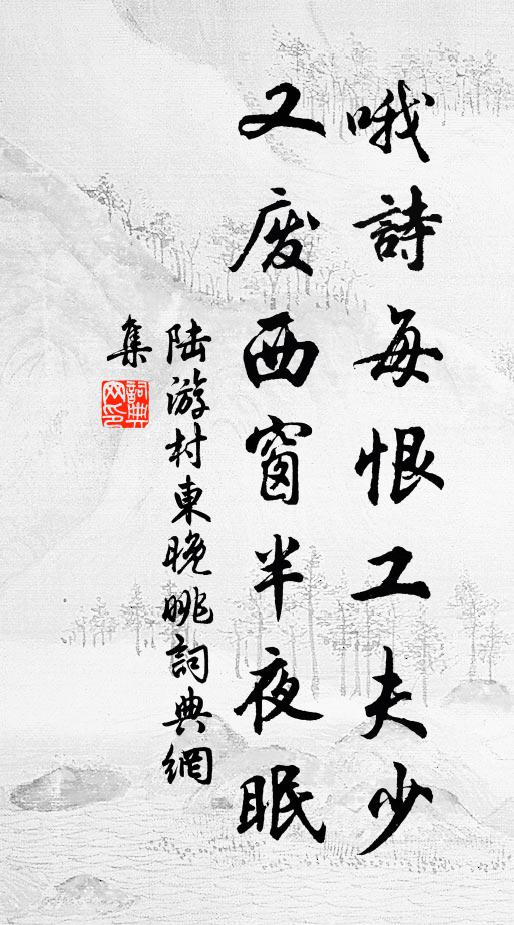 哦詩每恨工夫少
又废西窗半夜眠
陆游村東晚眺詞典網
集
詞典